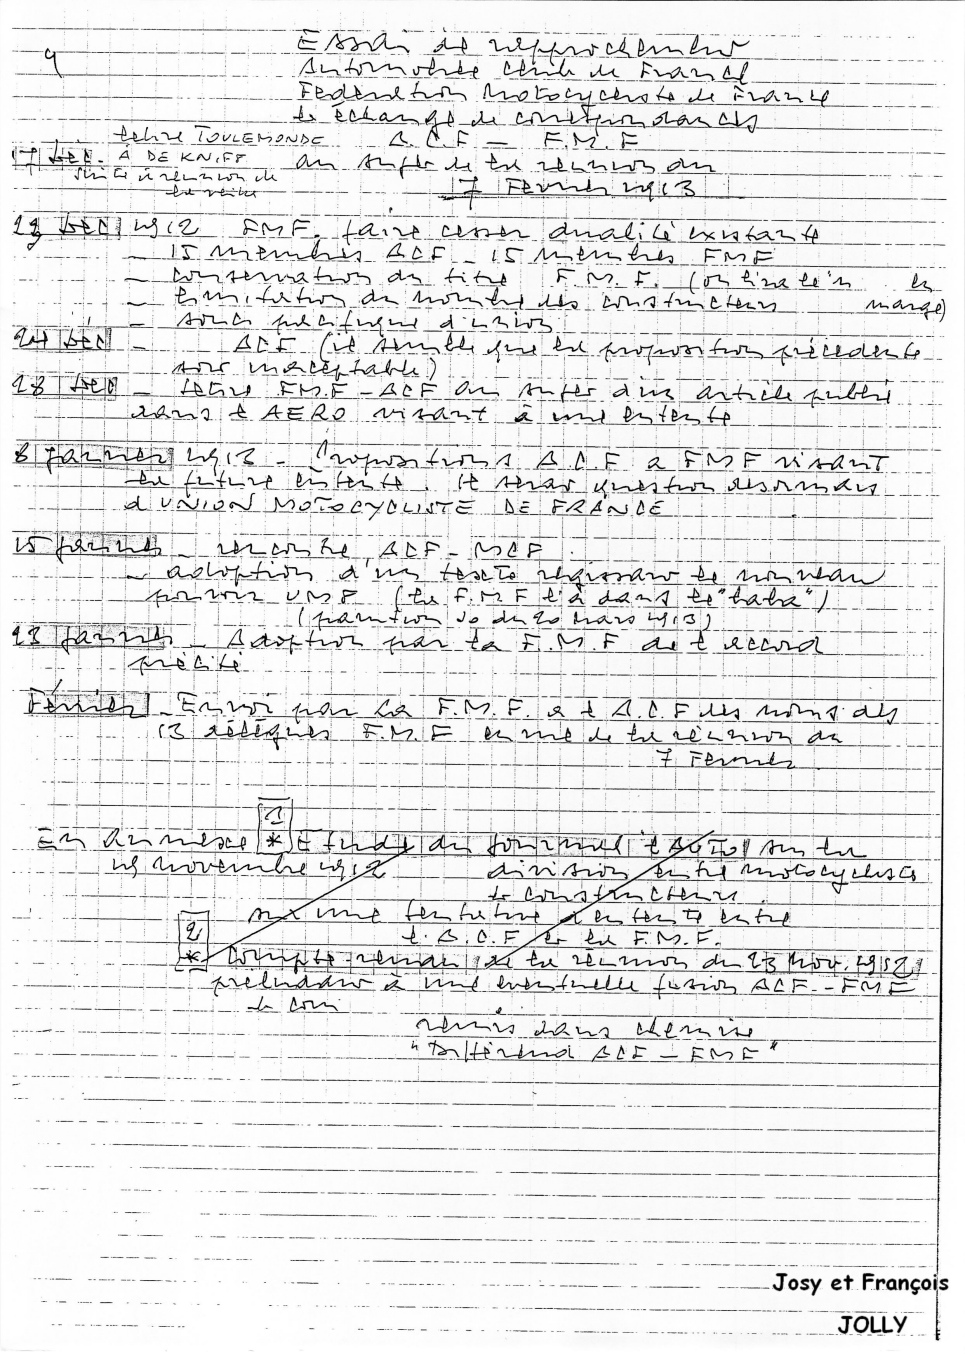 9
Essai de rapprochement
Automobile Club de France
Fédération Motocycliste de France
et échange de correspondances
A.C.F - F.M.F
au sujet de la réunion du
7 Février 1913
17 Déc. lettre TOULEMONDE
À DE KNIFF
suite à réunion de
la veille
19 Déc 1912 FMF. faire cesser dualité existante
- 15 membres ACF - 15 membres FMF
- conservation du titre F.M.F. (on lira le en
- limitation du nombre des constructeurs marge)
- souci d'union
24 Déc - ACF (il semble que la proposition précédente
soit inacceptable)
28 Déc - lettre FMF - ACF au sujet d'un article publié
dans l'AERO visant à une entente
8 Janvier 1913 - Propositions A.C.F à FMF visant
la future entente. Il sera question désormais
d'UNION MOTOCYCLISTE DE FRANCE
15 Janvier - rencontre ACF - MCF
- adoption d'un texte régissant le nouveau
pouvoir UMF (la F.M.F l'a dans le "baba")
(parution du 20 Mars 1913)
23 Janvier - Adoption par la F.M.F de l'accord
précité
Février - Envoi par la F.M.F. à l'A.C.F des noms des
13 délégués F.M.F en vue de la réunion du
7 Février
1
En Annexe * Etude du journal l'AUTO sur la
19 novembre 1912 division entre motocyclistes
et constructeurs.
sur une tentative d'entente entre
l'A.C.F et la F.M.F.
2
* Compte-rendu de la réunion du 23 Nov. 1912
préludant à une éventuelle fusion ACF - FMF
remis dans chemise
"Différend ACF - FMF"
Josy et François
JOLLY